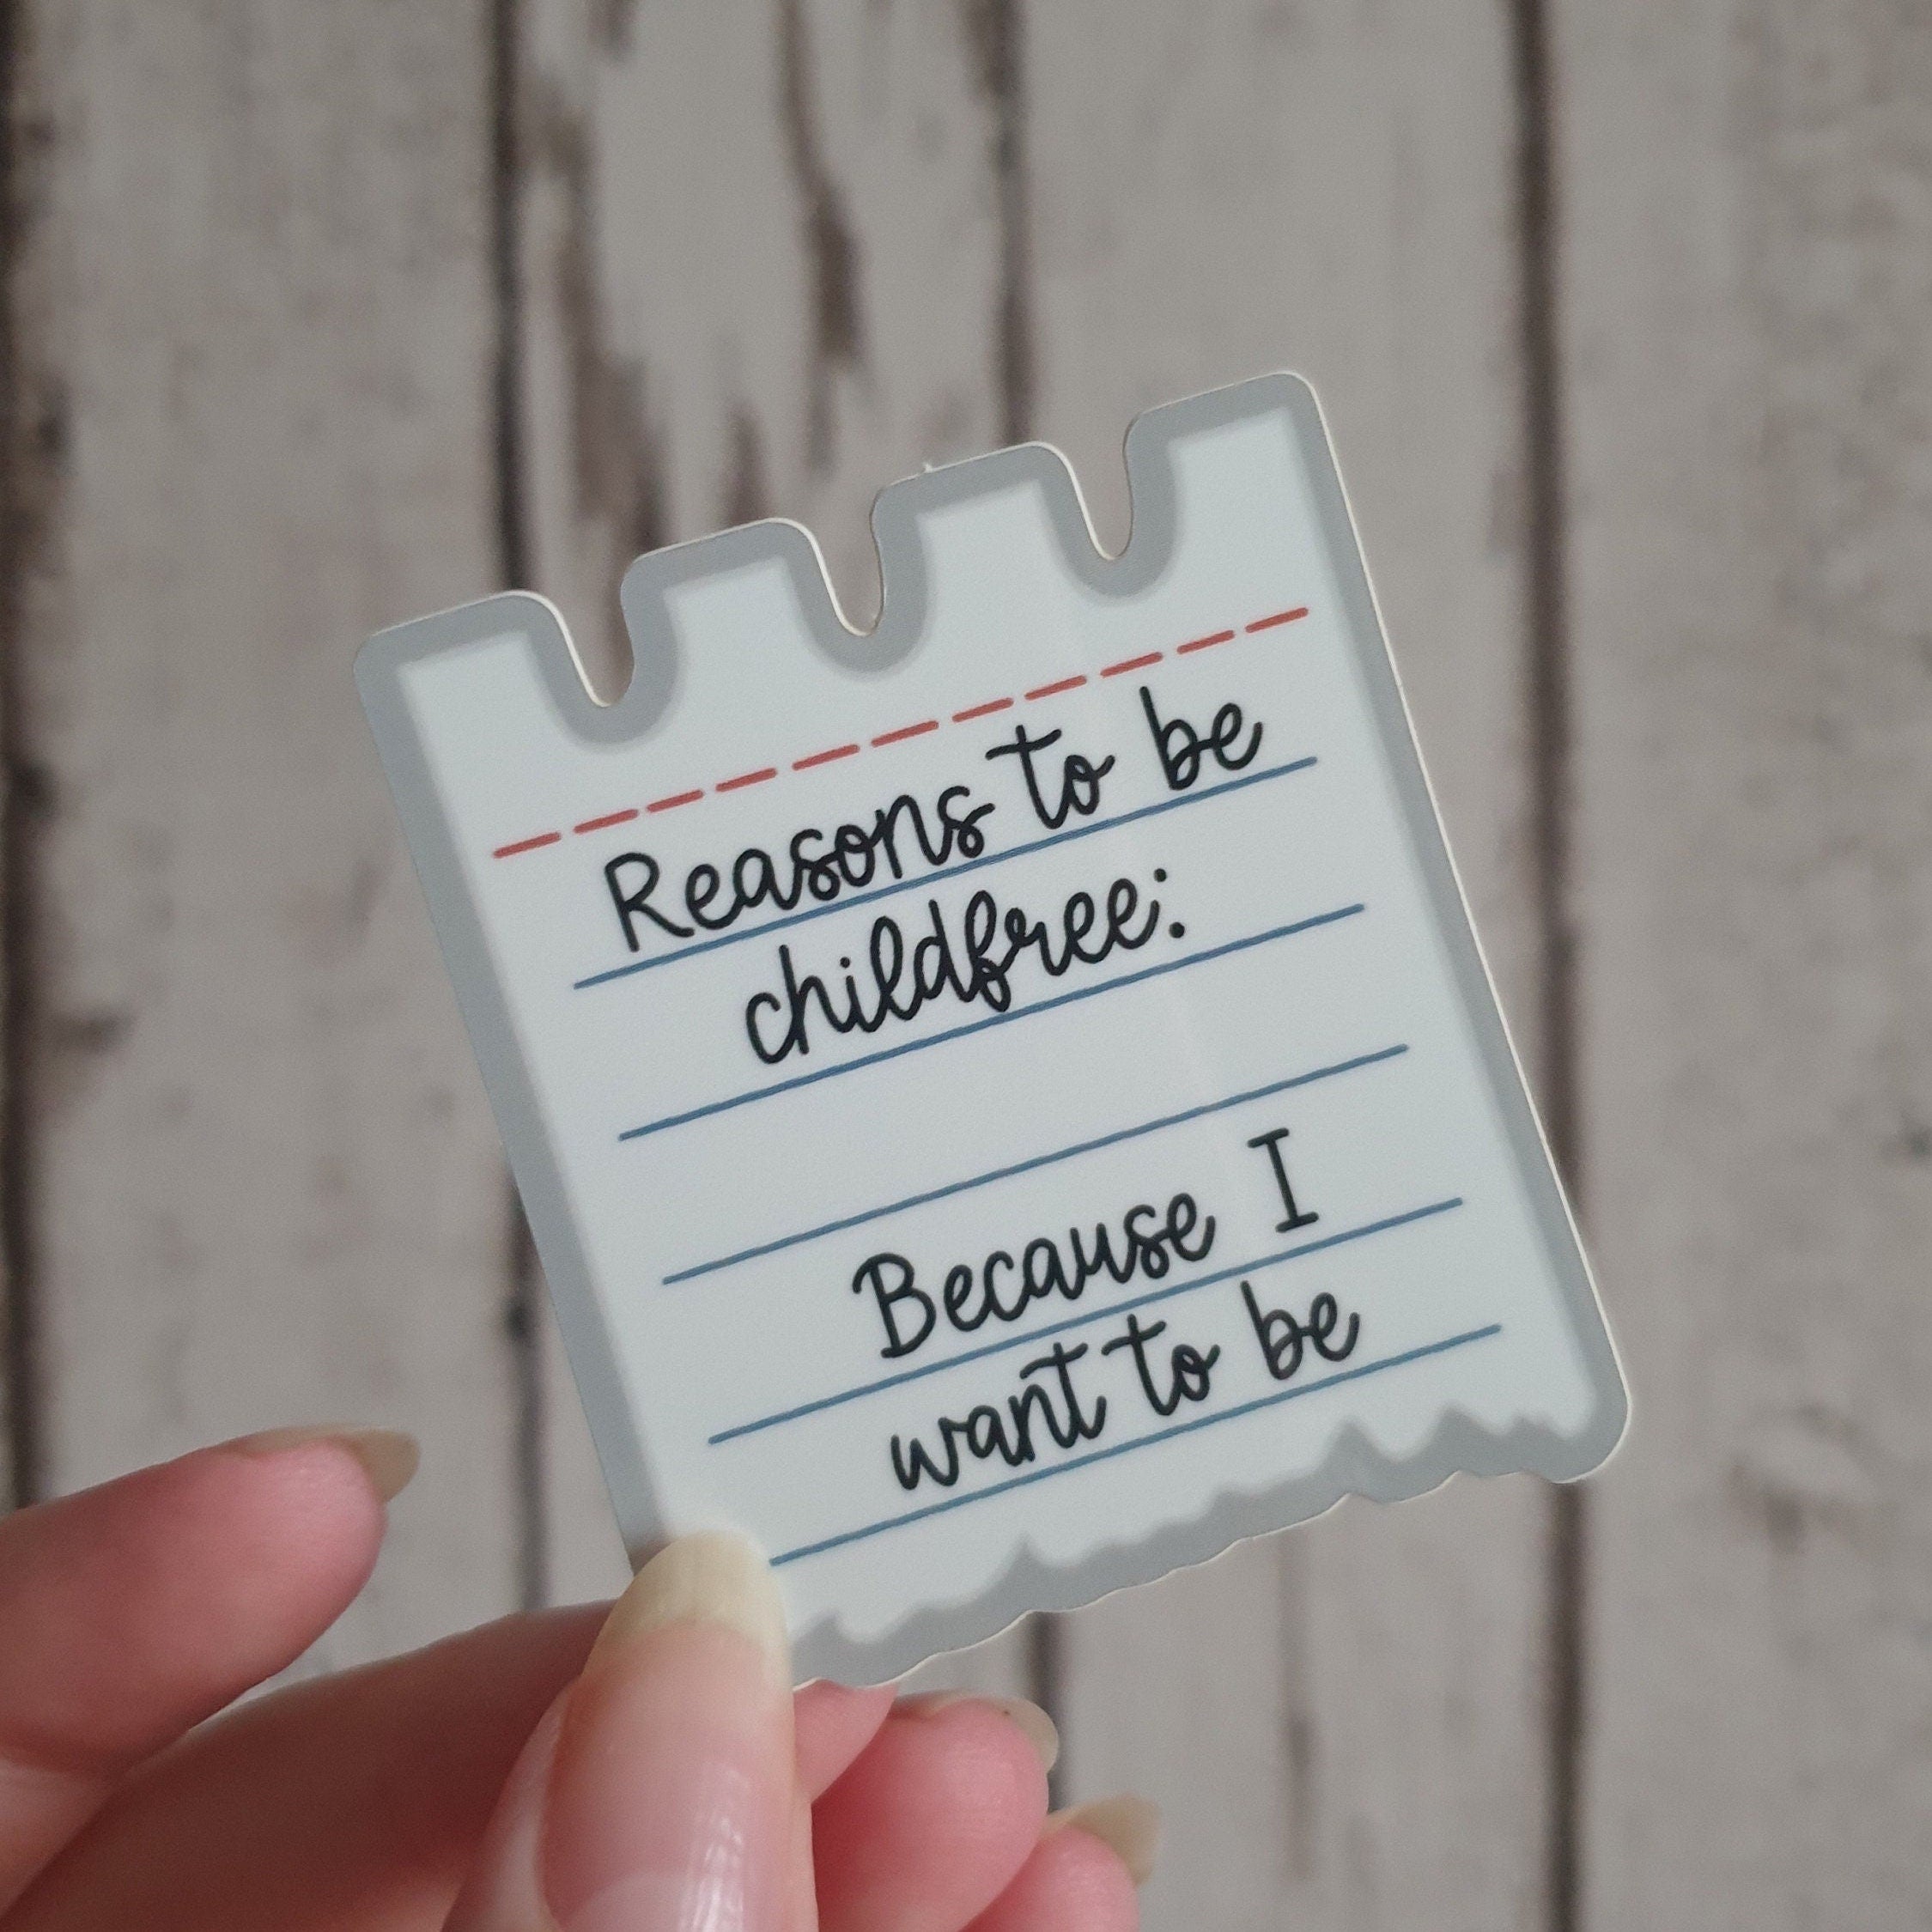 Reasons to be
childfree:
Because I
want to be